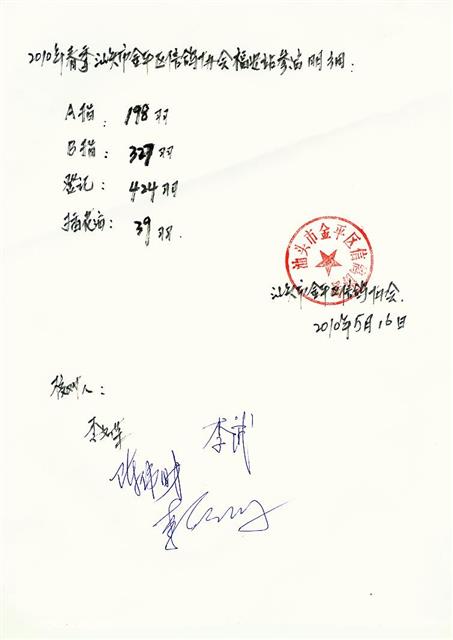 2010年春季汕头市金平区信鸽协会福州站参赛明细：
A指：198羽
B指：327羽
登记：424羽
插花翁：39羽.
汕头市金平区信鸽
汕头市金平区信鸽协会.
2010年5月16日
核对人：
李 李斌